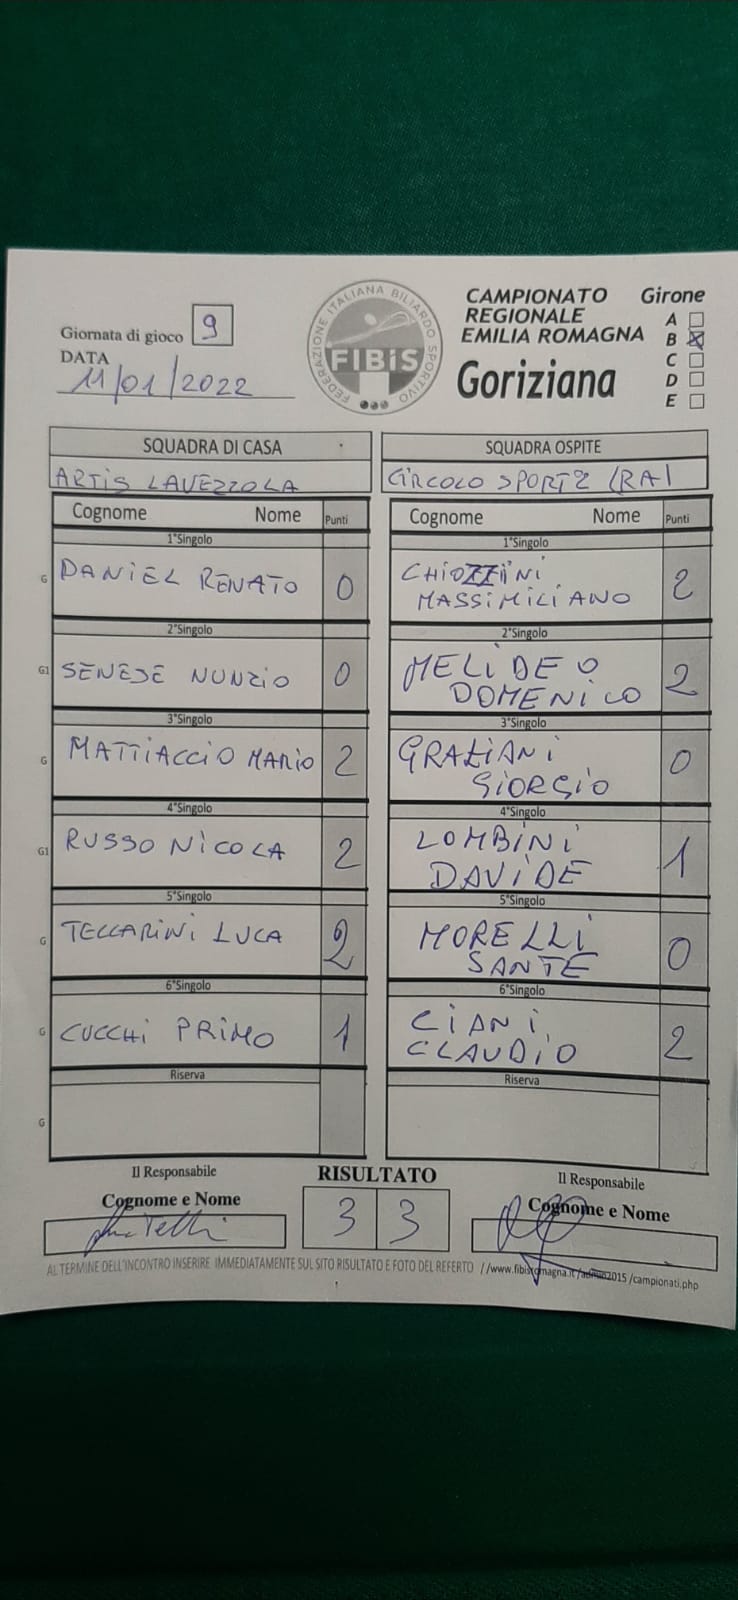 Giornata di gioco 9
DATA
11/01/2022
FEDERAZIONE ITALIANA BILIARDO SPORTIVO
FIBiS
CAMPIONATO
REGIONALE
EMILIA ROMAGNA
Goriziana
Girone
A
B X
C
D
E
SQUADRA DI CASA
SQUADRA OSPITE
ARTIS LAVEZZOLA
CIRCOLO SPORT 2 (RA)
Cognome Nome Punti
Cognome Nome Punti
1°Singolo
1°Singolo
G DANIEL RENATO 0
CHIOZZINI
MASSIMILIANO 2
2°Singolo
2°Singolo
G1 SENESE NUNZIO 0
MELIDEO
DOMENICO 2
3°Singolo
3°Singolo
G MATTIACCIO MARIO 2
GRAZIANI
GIORGIO 0
4°Singolo
4°Singolo
G1 RUSSO NICOLA 2
LOMBINI
DAVIDE 1
5°Singolo
5°Singolo
G TECCARINI LUCA 2
MORELLI
SANTE 0
6°Singolo
6°Singolo
G CUCCHI PRIMO 1
CIANI
CLAUDIO 2
Riserva
Riserva
G
Il Responsabile
Cognome e Nome
RISULTATO
3 3
Il Responsabile
Cognome e Nome
AL TERMINE DELL'INCONTRO INSERIRE IMMEDIATAMENTE SUL SITO RISULTATO E FOTO DEL REFERTO //www.fibisromagna.it/admin2015/campionati.php